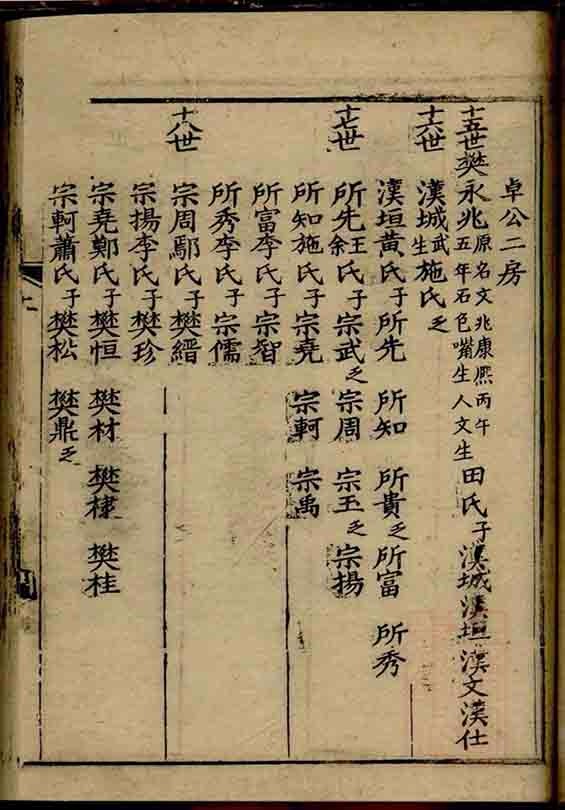 卓公二房
十五世樊永兆原名文兆康熙丙午五年石邑嘴生人文生田氏子漢城漢垣漢文漢仕
十六世漢城武生施氏乏
漢垣黃氏子所先 所知 所貴乏所富 所秀
十七世所先王氏余氏子宗武乏宗周 宗玉乏宗揚
所知施氏子宗堯 宗軻 宗禹
所富李氏子宗智
所秀李氏子宗儒
十八世宗周鄢氏子樊縉
宗揚李氏子樊珍
宗堯鄭氏子樊恒 樊材 樊棣 樊桂
宗軻蕭氏子樊松 樊鼎乏